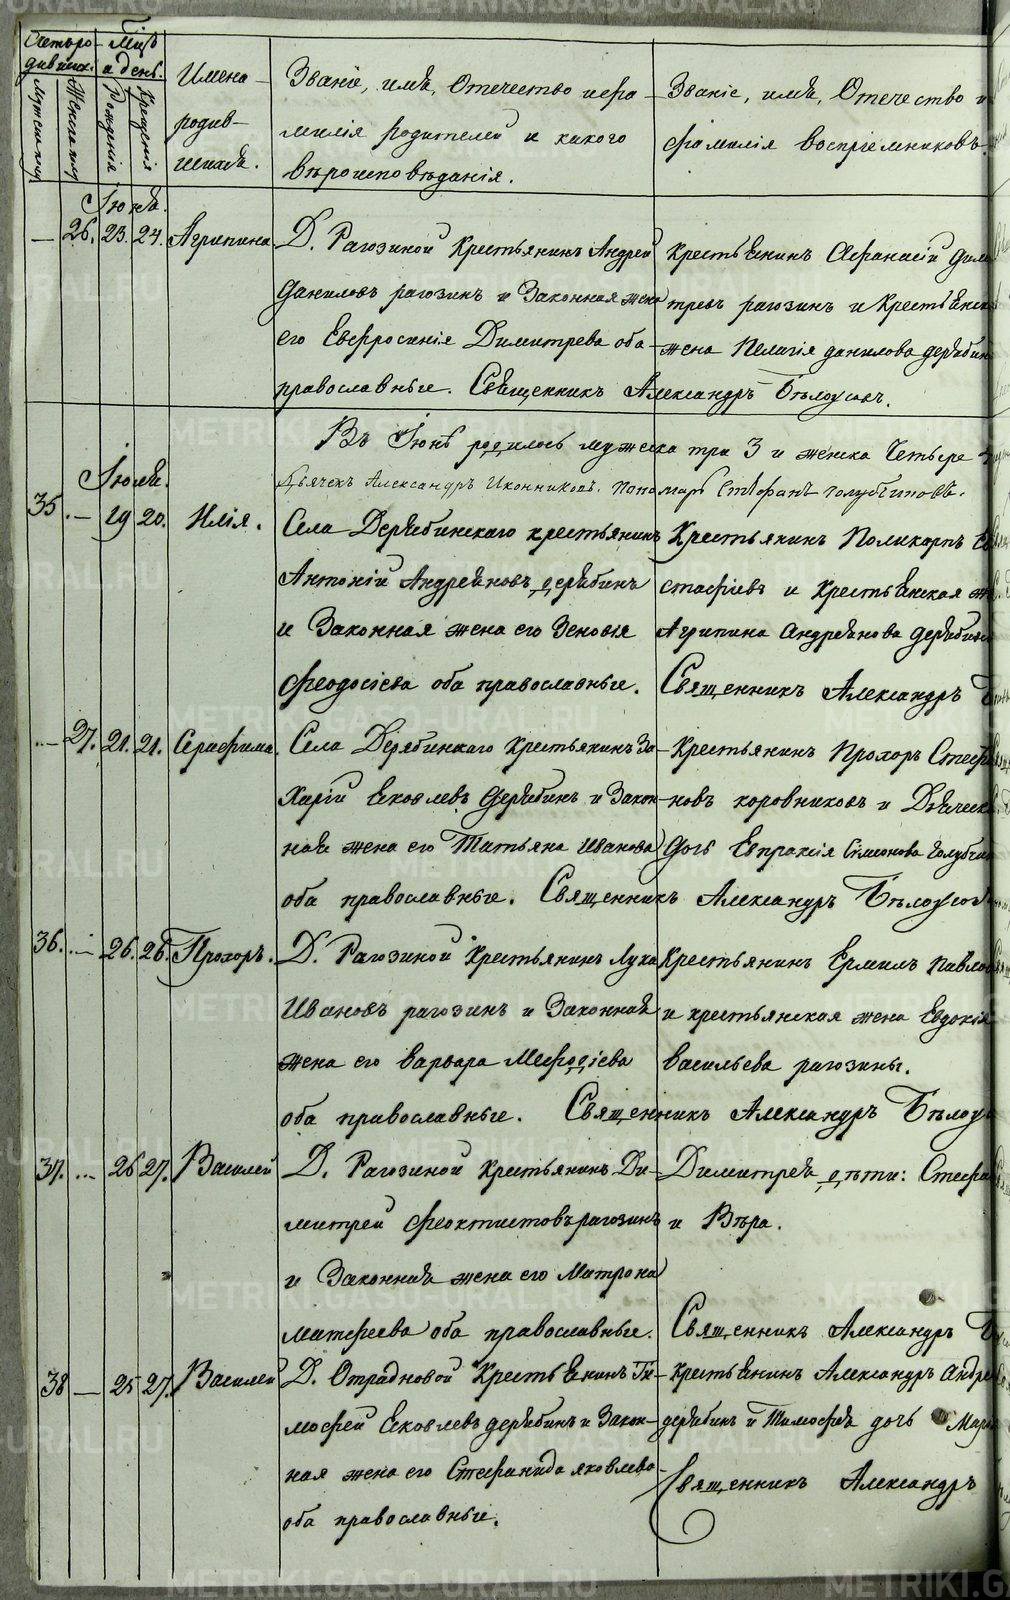 Счетъ родившихся.
Мѣсяцъ и день.
Имена родившихся.
Званіе, имя, Отечество и фамилія родителей и какого вѣроисповѣданія.
Званіе, имя, Отечество и фамилія воспріемниковъ.
Рожденія
Крещенія
Іюня.
— 26. 23. 24. Агрипина
Д. Рагозиной Крестьянинъ Андрей
Даниловъ рагозинъ и Законная жена
его Евфросинія Димитрева оба
православные. Священникъ Александръ Бѣлоусовъ.
Крестьянинъ Афанасій
тревъ рагозинъ и Крестьянска
жена Пелагія данилова
Въ Іюнѣ родилось мужеска три 3 и женска Четыре
Дьячекъ Александръ Иконниковъ. Пономарь Стефанъ голубчиковъ.
Іюля.
35. — 19 20. Илія.
Села Дерябинскаго крестьянинъ
Антоній Андреяновъ дерябинъ
и Законная жена его Зеновія
феодосіева оба православные.
Крестьянинъ Поликарпъ
стафіевъ и Крестьянская
Агрипина Андреянова
Священникъ Александръ
— 27. 21. 21. Серафима.
Села Дерябинскаго Крестьянинъ За-
харій Яковлевъ Дерябинъ и Закон-
ная жена его Татьяна Иванова
оба православные. Священникъ Александръ
Крестьянинъ Прохоръ
новъ коровниковъ и
дочь Евпраксія Симеонова
36. — 26. 26. Прохоръ.
Д. Рагозиной Крестьянинъ Лука
Ивановъ рагозинъ и Законная
жена его Варвара Мефодіева
оба православные. Священникъ Александръ
Крестьянинъ Ермилъ
и крестьянская жена Евдокія
васильева рагозины.
37. — 26 27. Василей
Д. Рагозиной Крестьянинъ Ди-
митрей феоктистовъ рагозинъ
и Законная жена его Матрона
матфеева оба православные.
Димитрея дѣти:
и Вѣра.
Священникъ Александръ
38 — 25 27. Василей
Д. Отрадновой Крестьянинъ Ти-
мофей Яковлевъ дерябинъ и Закон-
ная жена его Стефанида яковлева
оба православные.
Крестьянинъ Александръ
дерябинъ и Тимофея дочь
Священникъ Александръ